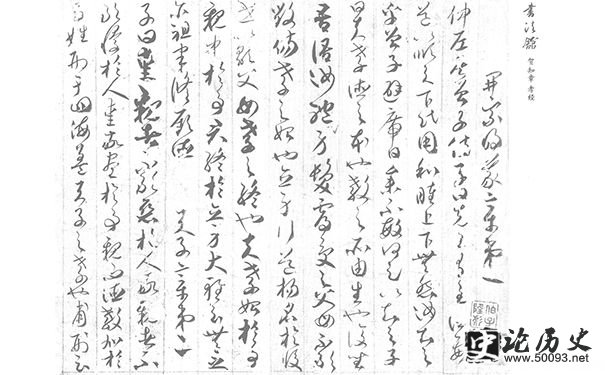 書法館
賀知章孝經
開宗明義章第一
仲尼居曾子侍子曰先王有至德要
道以順天下民用和睦上下無怨汝知之
乎曾子避席曰參不敏何足以知之子
曰夫孝德之本也教之所由生也復坐
吾語汝身體髮膚受之父母不敢
毀傷孝之始也立身行道揚名於後
世以顯父母孝之終也夫孝始於事
親中於事君終於立身大雅云無念
爾祖聿脩厥德 天子章第二
子曰愛親者不敢惡於人敬親者不
敢慢於人愛敬盡於事親而德教加於
百姓刑于四海蓋天子之孝也甫刑云
论历史
www.50093.net